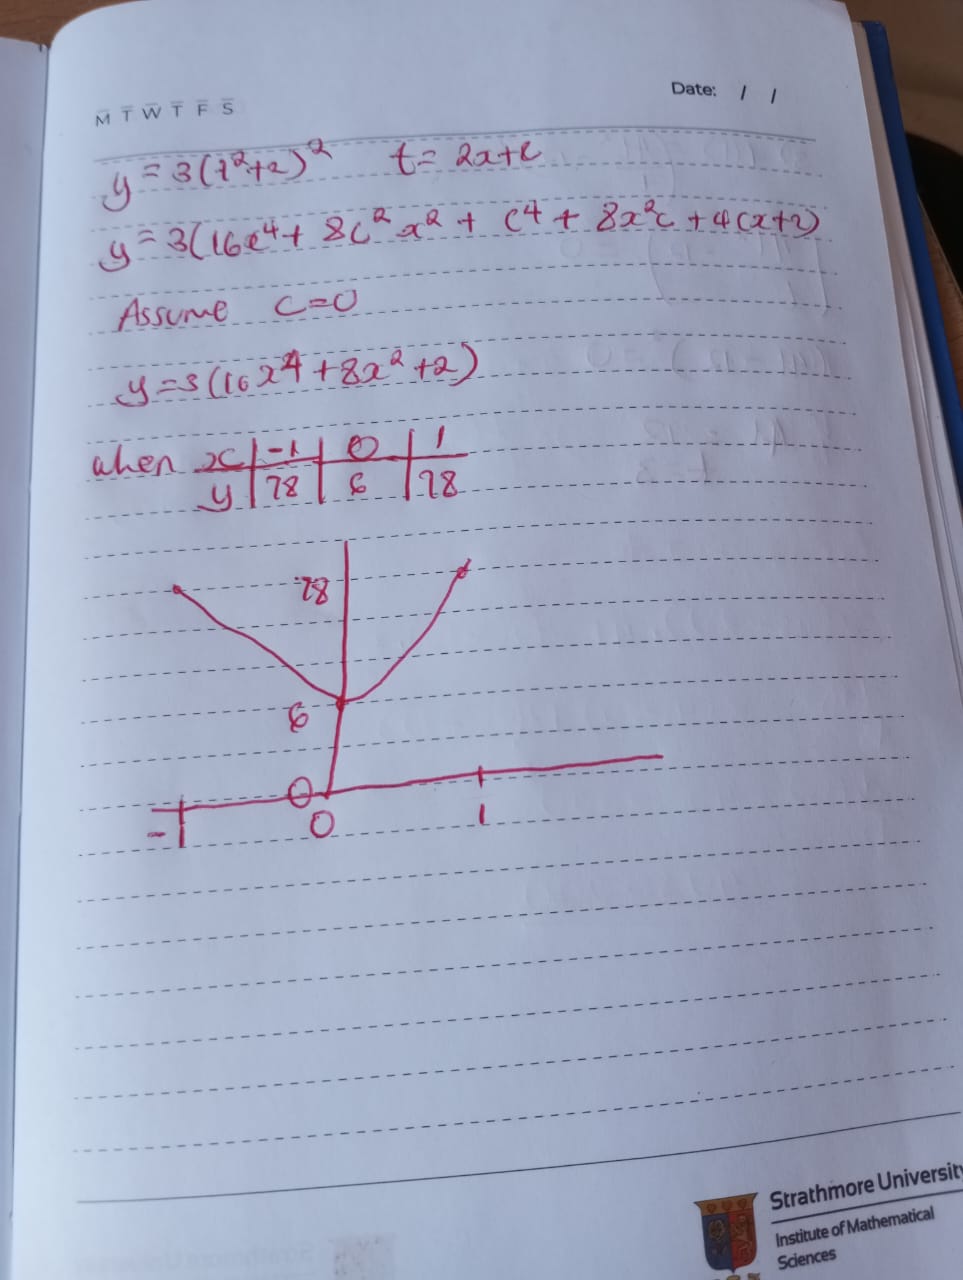 Date: / /
M T W T F S
y = 3(t²+2)² t = 2x+c
y = 3(16x⁴ + 8c²x² + c⁴ + 8x²c + 4cx+2)
Assume c=0
y=3(16x⁴+8x²+2)
when x | -1 | 0 | 1
y | 78 | 6 | 78
78
6
0
-1 0 1
Strathmore University
Institute of Mathematical
Sciences